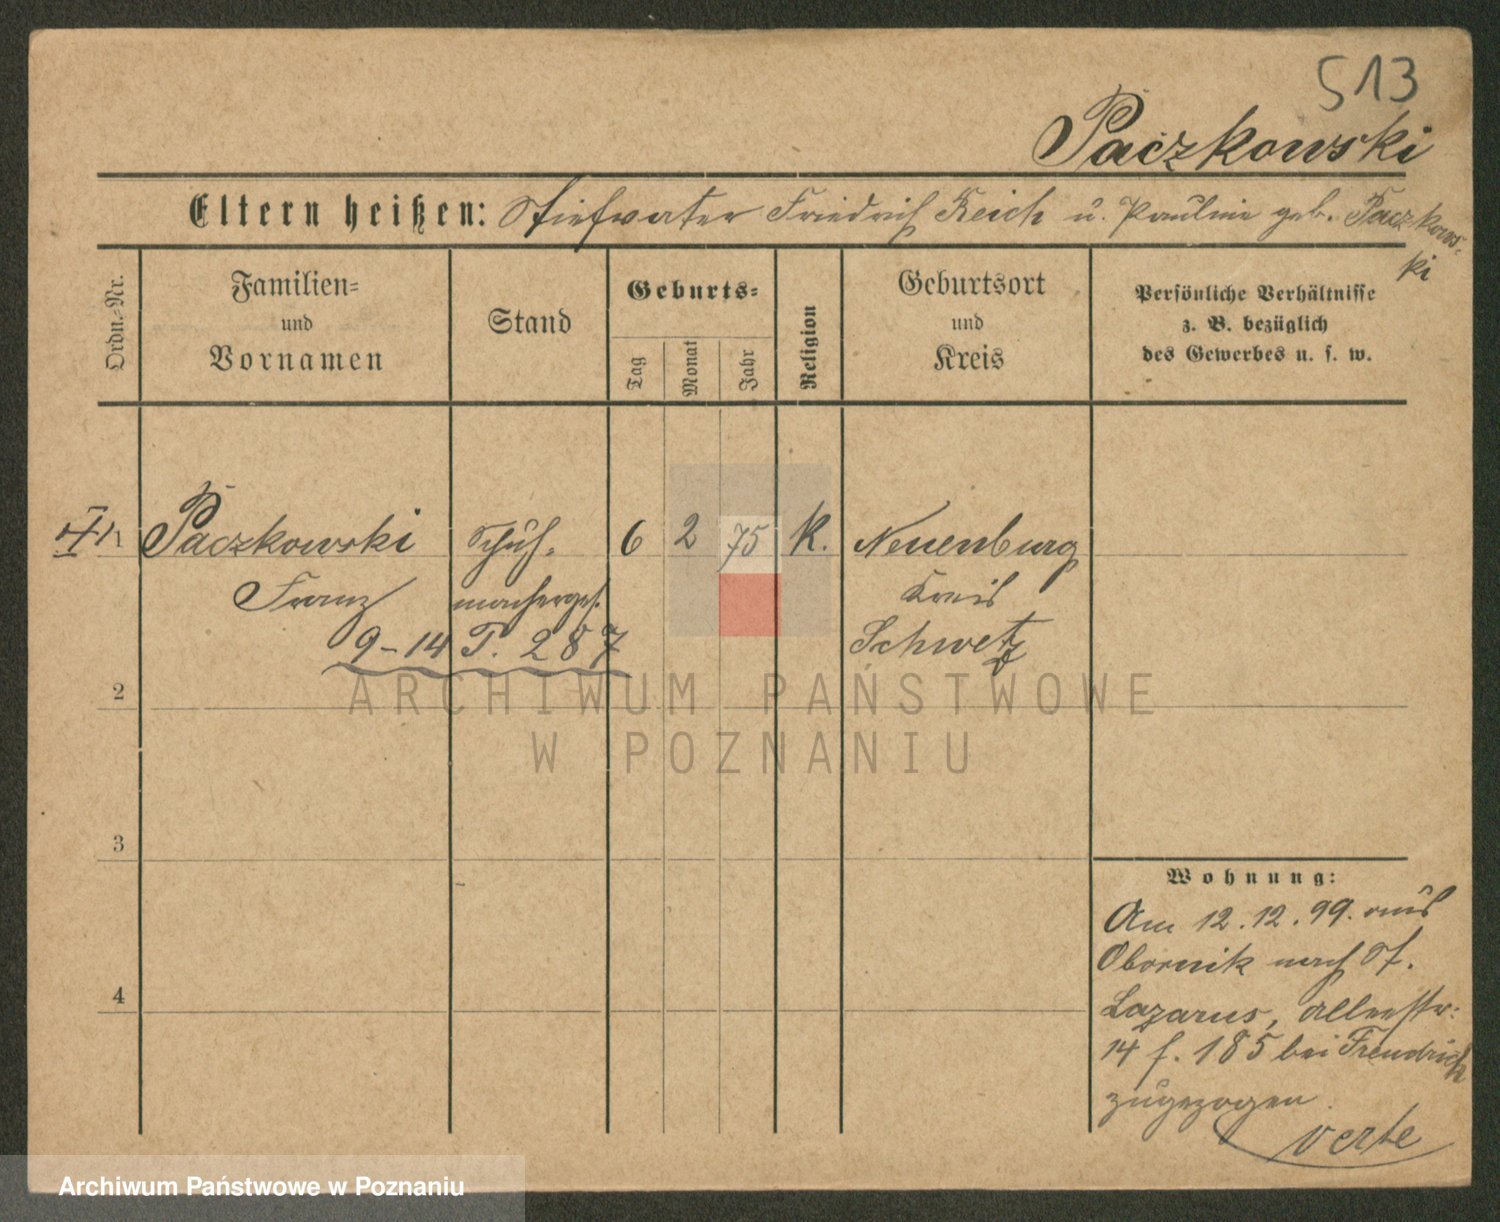 513
Paczkowski
Eltern heißen: Stiefvater Friedrich Reich u. Pauline geb. Paczkows-
ki
Ordn.-Nr.
Familien-
und
Vornamen
Stand
Geburts-
Tag
Monat
Jahr
Religion
Geburtsort
und
Kreis
Persönliche Verhältnisse
z. B. bezüglich
des Gewerbes u. s. w.
1 Paczkowski Schuh- 6 2 75 K. Neuenburg
Franz macherges. Kreis
9-14 T. 287 Schwetz
2
ARCHIWUM PAŃSTWOWE
W POZNANIU
3
Wohnung:
Am 12.12.99. aus
Obornik nach St.
4
Lazarus, Allerstr:
14 f. 185 bei Freudrich
zugezogen.
verte
Archiwum Państwowe w Poznaniu